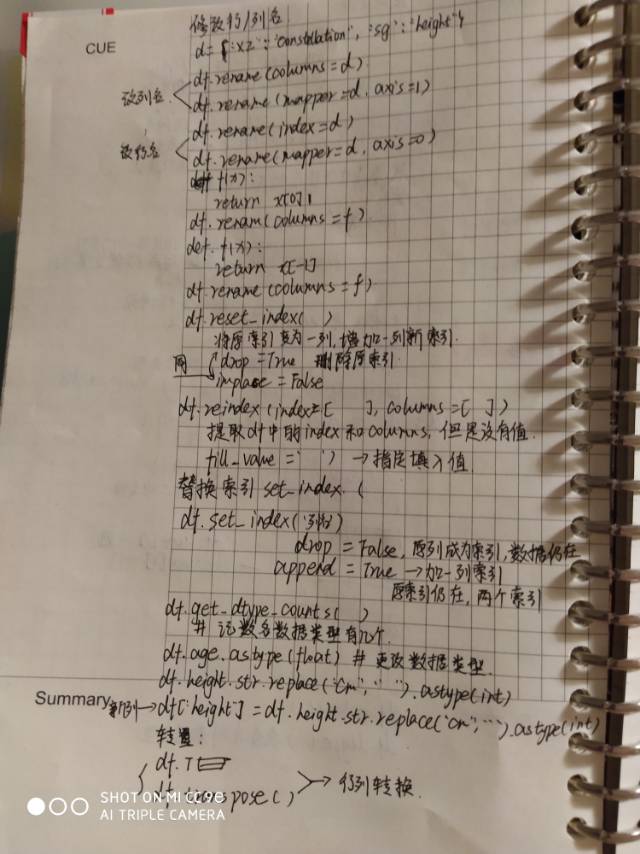 CUE
修改行/列名
d={'xz':'constellation','sg':'height'}
改列名
df.rename(columns=d)
df.rename(mapper=d,axis=1)
改行名
df.rename(index=d)
df.rename(mapper=d,axis=0)
def f(x):
return x[0]
df.renam(columns=f)
def f(x):
return x[-1]
df.rename(columns=f)
df.reset_index( )
将原索引变为一列,增加一列新索引.
drop=True 删除原索引.
inplace=False
df.reindex(index=[ ],columns=[ ])
提取df中的index和columns,但是没有值.
fill_value=' ') →指定填入值
替换索引 set_index (
df.set_index('列名')
drop=False,原列成为索引,数据仍在
append=True→加一列索引
原索引仍在,两个索引
df.get_dtype_counts( )
# 记数各数据类型有几个.
df.age.astype(float) # 更改数据类型.
df.height.str.replace("cm"," ").astype(int)
Summary
新列→df['height']=df.height.str.replace("cm","").astype(int)
转置:
df.T
df.transpose( ) →行列转换.
SHOT ON MI CC9e
AI TRIPLE CAMERA